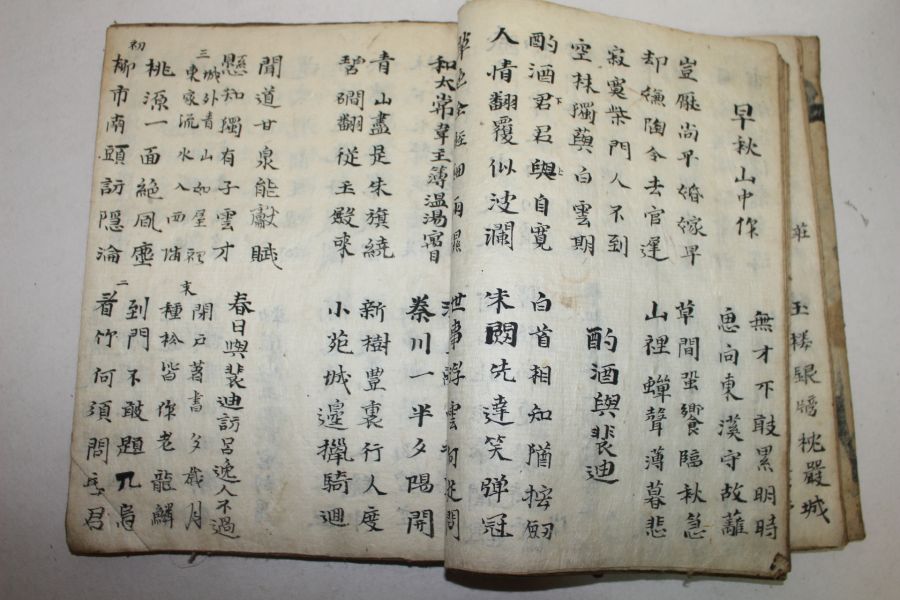 莊
玉樓銀牓枕嚴城
早秋山中作
無才不敢累明時
思向東溪守故蘺
豈厭尚平婚嫁早
却嫌陶令去官遲
草間蛩響臨秋急
山裡蟬聲薄暮悲
寂寞柴門人不到
空林獨與白雲期
酌酒與裴迪
酌酒君君與自寬
下 下
人情翻覆似波瀾
白首相知猶按劒
朱門先達笑弹冠
草色全經細雨濕
世事浮雲何足問
和太常韋主薄温湯寓目
秦川一半夕陽開
青山盡是朱旗繞
碧磵翻從玉殿來
新樹豊裏行人度
小苑城邊獵騎廻
聞道甘泉能獻賦
懸知獨有子雲才
春日與裴迪訪呂逸人不過
三
城外青山如屋裡
東家流水入西隣
末
閉戶著書夕歲月
種松皆作老龍鱗
初
桃源一面絶風塵
柳市南頭訪隱淪
二
到門不敢題凡鳥
看竹何須問主君